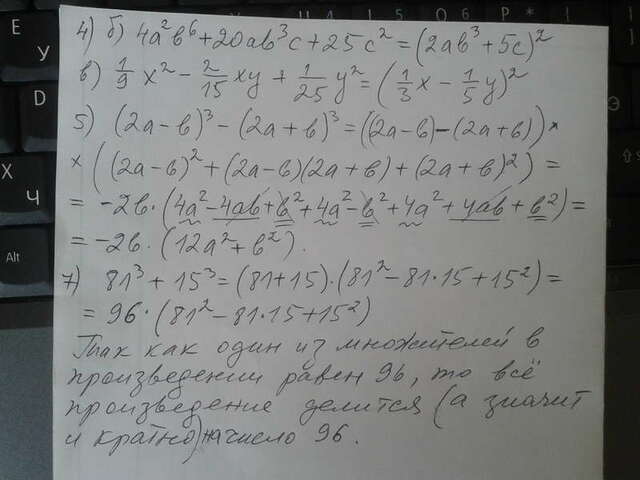 4) б) 4a²b⁶+20ab³c+25c²=(2ab³+5c)²
в) 1/9 x² - 2/15 xy + 1/25 y² = (1/3 x - 1/5 y)²
5) (2a-b)³-(2a+b)³=((2a-b)-(2a+b))×
×((2a-b)²+(2a-b)(2a+b)+(2a+b)²)=
=-2b·(4a²-4ab+b²+4a²-b²+4a²+4ab+b²)=
=-2b·(12a²+b²).
7) 81³+15³=(81+15)·(81²-81·15+15²)=
=96·(81²-81·15+15²)
Так как один из множителей в
произведении равен 96, то всё
произведение делится (а значит
и кратно) на число 96.